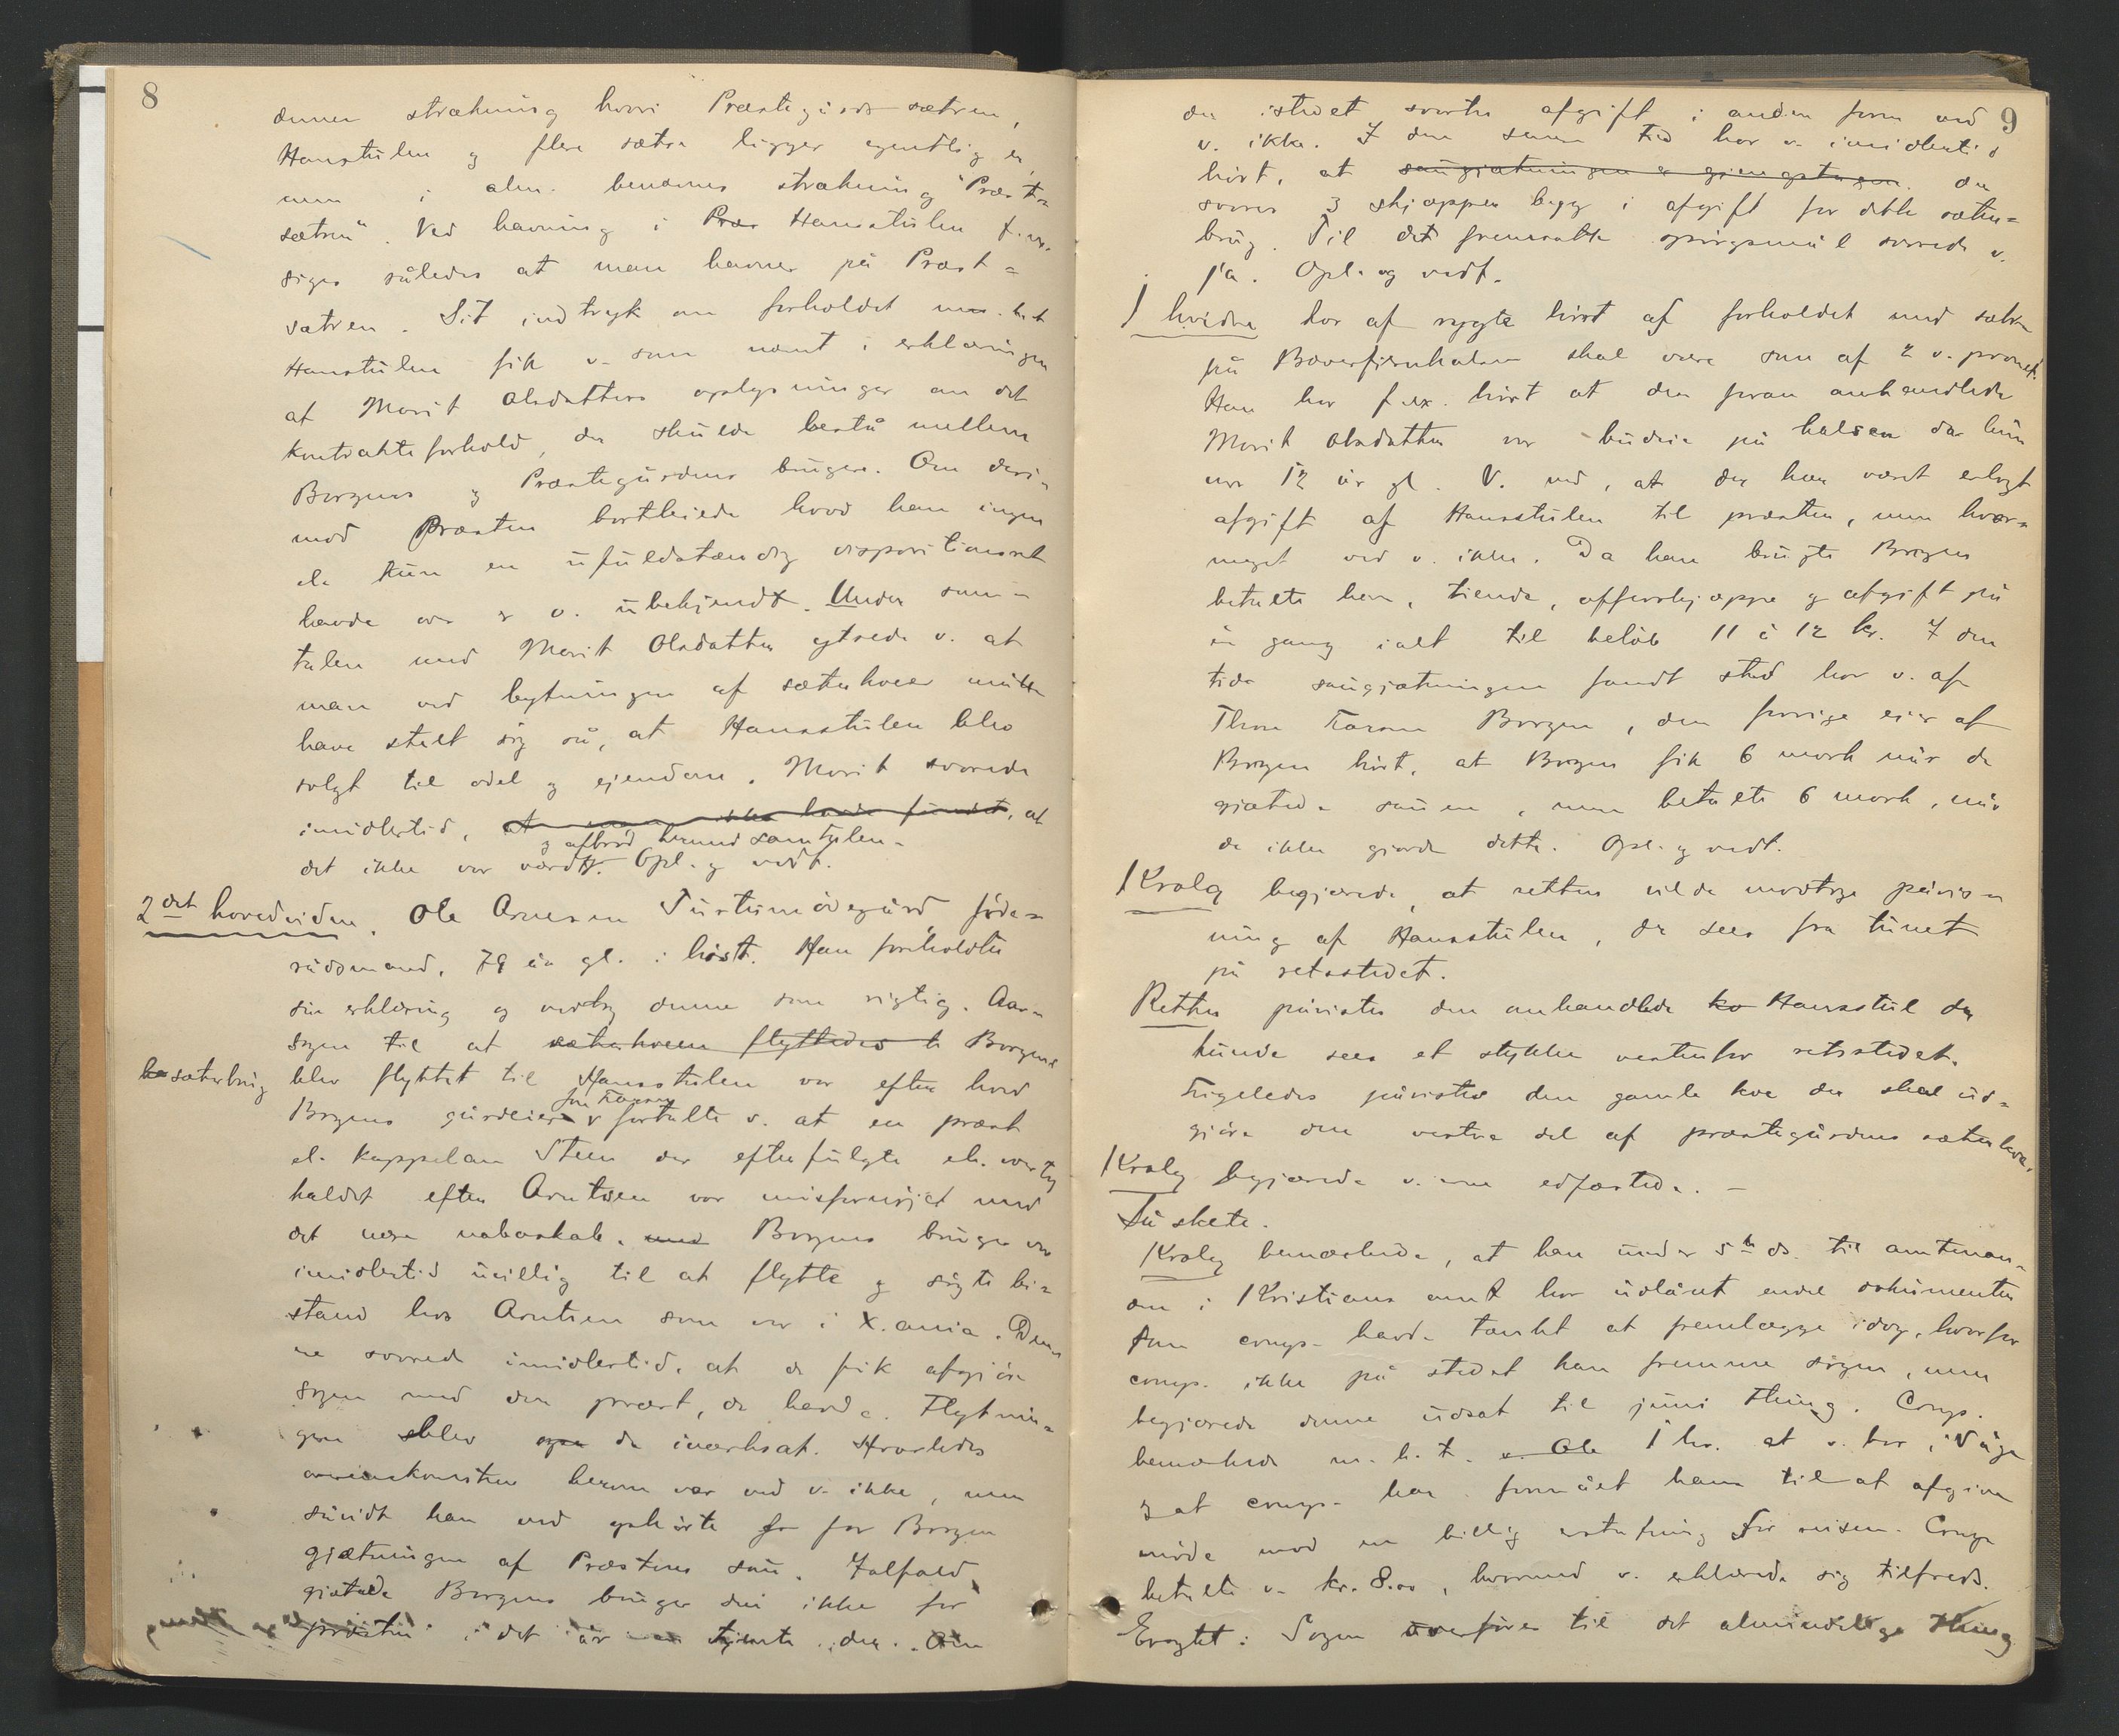 8
denne strækning hvori Præstegårdssætren,
Hansstulen og flere sætre ligger egentlig er,
men i alm. benævnes strækning "Præste=
sætren". Ved havning i Præs Hansstulen f. ex.
siges således at man havner på Præst=
sætren. Sit indtryk om forholdet m. h. t.
Hansstulen fik v. som nævnt i erklæringen
af Marit Olsdatters oplysninger om det
kontraktsforhold, der skulde bestå mellem
Borgens og Præstegårdens brugere. Om deri-
mod Præsten bortleiede hvad han ingen
el. kun en ufuldstændig dispositionsret
havde over er v. ubekjendt. Under sam-
talen med Marit Olsdatter ytrede v. at
man ved bytningen af sæterhver måtte
have stelt sig så, at Hansstulen blev
solgt til odel og ejendom. Marit svarede
imidlertid, at man ikke havde fundet, at
og afbrød hermed samtalen.
det ikke var værdt. Opl. og vedt.
2det hovedvidne. Ole Arnesen Sustumödegård, föde-
rådsmand, 79 år gl. i höst. Han foreholdtes
sin erklæring og vedtog denne som rigtig. Aar-
sagen til at sæterhveen flyttedes h Borgens
sæterbrug blev flyttet til Hansstulen var efter hvad
Jon Tarsen
Borgens gårdeier v fortalte v. at en præst
el. kappelan Steen der efterfulgte el. overtog
kaldet efter Arntsen var misfornöjet med
det nære naboskab. med Borgens bruger var
imidlertid uvillig til at flytte og sögte bi-
stand hos Arntsen som var i X.ania. Den-
ne svarede imidlertid, at de fik afgjöre
sagen med den præst, de havde. Flytnin-
gen blev da iværksat. Hvorledes
overenskomsten herom var ved v. ikke, men
såvidt han ved ophörte for Borgen
gjætningen af Præstens sau. Ialfald
gjætede Borgens bruger sau ikke for
præsten i det år v. tjente der. Om
9
der istedet svartes afgift i anden form ved
v. ikke. I den senere tid har v. imidlertid
hört, at saugjætningen er gjengstagen. der
svares 3 skjæpper bygg i afgift for dette sæter=
brug. Til det fremsatte spörgsmål svarede v.
ja. Opl. og vedt.
1 hvidne har af rygte hört af forholdet med sætre
på Bæverfjernhalsen skal være som af 2 v. provet.
Han har f. ex. hört at den foran anhandlede
Marit Olsdatter var budeie på halsen da hun
var 12 år gl. V. ved, at der har været erlagt
afgift af Hansstulen til præsten, men hvor-
meget ved v. ikke. Da han brugte Borgen
betalte han, tiende, offerskjæppe og afgift på
én gang ialt til belöb 11 à 12 kr. I den
tid saugjætningen fandt sted har v. af
Thor Tarsen Borgen, den forrige eier af
Borgen hört, at Borgen fik 6 mark når de
gjætede sauen, men betalte 6 mark, når
de ikke gjorde dette. Opl. og vedt.
Kralg begjærede, at retten vilde modtage påvis-
ning af Hansstulen, der sees fra tunet
på retsstedet.
Retten påvistes den anhandlede ko Hansstul der
kunde sees et stykke vestenfor retsstedet.
Ligeledes påvistes den gamle kve der skal ud-
gjöre den vestre del af præstegårdens sæterkve.
Kralg begjærede v.ene edfæstede. —
Så skete.
Kralg bemærkede, at han under 5te ds. til amtman-
den i Kristians amt har udlånt endel dokumenter
som comp. havde tænkt at fremlægge idag, hvorfor
comp. ikke på stedet kan fremme sagen, men
begjærede denne udsat til juni thing. Comp.
bemærkede m. h. t. v. Ole 1 hv. at v. bor i Våge
og at comp. har formået ham til at afgive
möde mod en billig erstatning for reisen. Comp
betalte v. kr. 8.00, hvormed v. erklærede sig tilfreds.
Eragtet: Sagen överföres til det almindelige thing